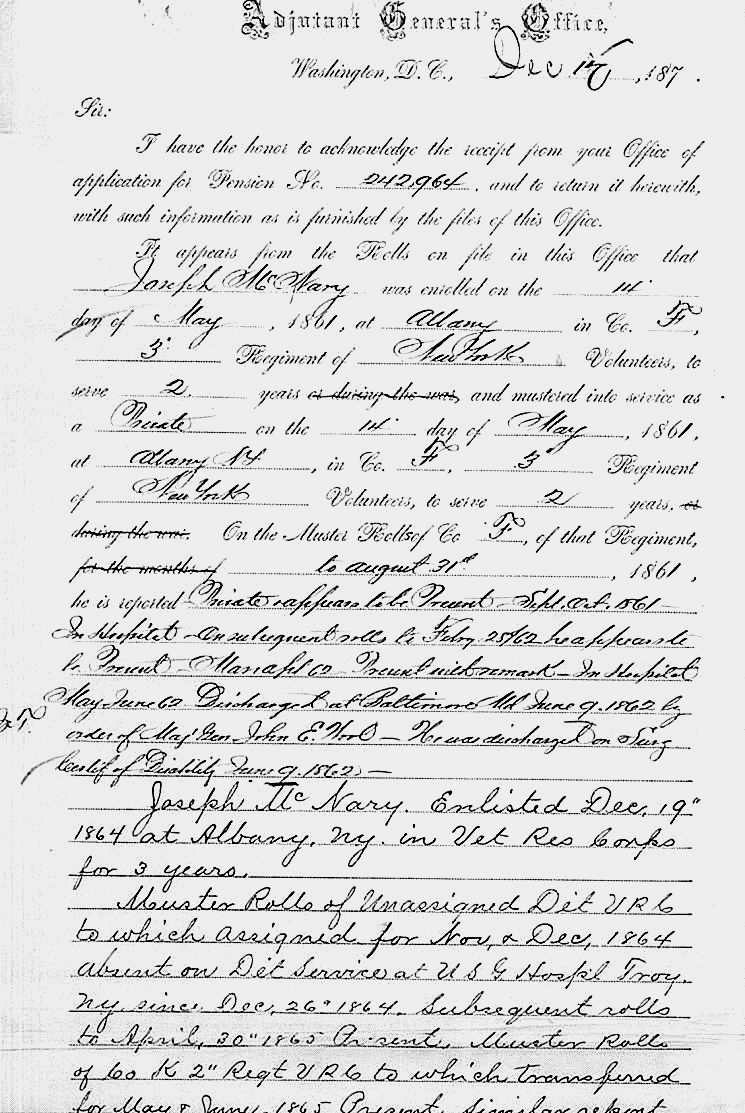 Adjutant General's Office,
Washington, D. C., Dec , 187 .
Sir:
I have the honor to acknowledge the receipt from your Office of
application for Pension No. 242,964, and to return it herewith,
with such information as is furnished by the files of this Office.
It appears from the Rolls on file in this Office that
Joseph McNary was enrolled on the 14
day of May, 1861, at Albany in Co. F,
3" Regiment of New York Volunteers, to
serve 2 years or during the war, and mustered into service as
a Private on the 14 day of May, 1861,
at Albany NY, in Co. F, 3" Regiment
of New York Volunteers, to serve 2 years, or
during the war. On the Muster Rolls of Co F, of that Regiment,
for the months of to August 31st, 1861,
he is reported Private appears to be Present - Sept. Oct. 1861 -
In Hospital - On subsequent rolls to Feby 28/62 he appears to
be Present - Mar & Apl 62 - Present with remark - In Hospital
May June 62 Discharged at Baltimore Md June 9. 1862 by
order of Maj Gen John E. Wool - He was discharged on Surg
Certif of Disability June 9. 1862 -
Joseph McNary. Enlisted Dec. 19"
1864 at Albany, Ny. in Vet Res Corps
for 3 years.
Muster Rolls of Unassigned Det V R C
to which assigned for Nov, & Dec, 1864
absent on Det Service at U S G Hospl Troy.
Ny. since Dec. 26" 1864. Subsequent rolls
to April, 30" 1865 Present. Muster Rolls
of Co K 2" Regt V R C to which transferred
for May & June, 1865 Present. Similar report